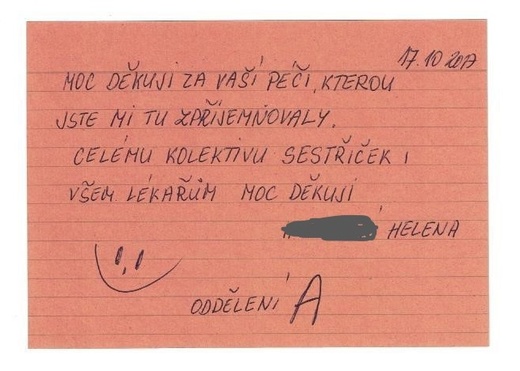 17.10 2017
MOC DĚKUJI ZA VAŠÍ PEČI, KTEROU
JSTE MI TU ZPŘÍJEMŇOVALY.
CELÉMU KOLEKTIVU SESTŘIČEK I
VŠEM LÉKAŘŮM MOC DĚKUJI
HELENA
ODDĚLENÍ A